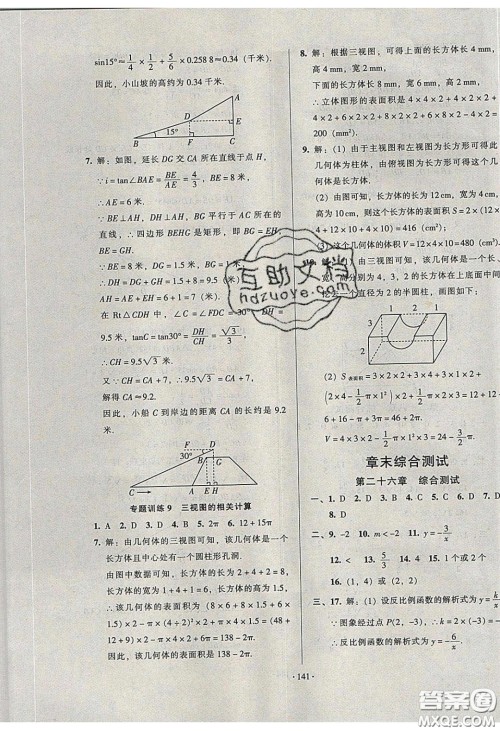 sin15°≈1/4×1/2+5/6×0.258 8≈0.34（千米）.
因此，小山坡的高约为 0.34 千米.
A
D
E
B
15°
F
C
7. 解：如图，延长 DG 交 CA 所在直线于点 H，
∵i=tan∠BAE=BE/AE=4/3，BE=8 米，
∴AE=6 米.
∵BE⊥AH，DH⊥AH，BG 平行于 AC 所在的
直线，∴四边形 BEHG 是矩形，即 BG=EH，
BE=GH.
∵BE=8 米，DG=1.5 米，BG=1 米，
∴DH=DG+GH=1.5+8=9.5（米），
AH=AE+EH=6+1=7（米）.
在 Rt△CDH 中，∵∠C=∠FDC=30°，DH=
9.5 米，tanC=tan30°=DH/CH=√3/3，
∴CH=9.5√3 米.
又∵CH=CA+7，∴9.5√3=CA+7，
解得 CA≈9.2.
因此，小船 C 到岸边的距离 CA 的长约是 9.2
米.
F
D
30°
B
C
A
E H
专题训练 9　三视图的相关计算
1. A　2. D　3. D　4. D　5. 2　6. 12+15π
7. 解：由几何体的三视图可知，该几何体是一个
长方体且中心处有一个圆柱形孔洞.
由图中数据可知，长方体的长为 2+4+2=8，
长方体的宽为 2+2+2=6，长方体的高为 1.5，
∴该几何体的表面积为（8×6+8×1.5+6×
1.5）×2-π×(4/2)²×2+π×4×1.5=（48+
12+9）×2-π×4×2+π×6=138-2π.
因此，该几何体的表面积是 138-2π.
8. 解：根据三视图，可得上面的长方体长 4 mm，
高 4 mm，宽 2 mm，
下面的长方体长 6 mm，宽 8 mm，高 2 mm，
∴立体图形的表面积是 4×4×2+4×2×2+
4×2+6×2×2+8×2×2+6×8×2-4×2=
200（mm²）.
9. 解：（1）由于主视图和左视图为长方形可得此
几何体为柱体，由俯视图为长方形可得这个几
何体是长方体.
（2）由图可知，长方体的长为 12 cm，宽为 4 cm，
高为 10 cm，则这个长方体的表面积 S=2×（12×
4+12×10+4×10）=416（cm²）；
（3）这个几何体的体积 V=12×4×10=480（cm³）.
（2）S表面积=3×2×2+3×4+1×4×2+
(2×4-1/2π×1²)×2+1/2×2π×1×3=12+
12+8+16-π+3π=48+2π，
V=4×3×2-1/2π×1²×3=24-3/2π.
章末综合测试
第二十六章　综合测试
二、9. 0　10. m<-2　11. y=-3/x
12. <　13. 5/3　14. 4　15. 1 个或 2 个
16.（1，4）或（2，2）
三、17. 解：（1）设反比例函数的解析式为 y=k/x，
∵图象经过点 P（2，-3），∴k=2×（-3）=-6，
∴反比例函数的解析式为 y=-6/x.
· 141 ·
互助文档
hdzuoye.com
答案圈
MXQE.COM